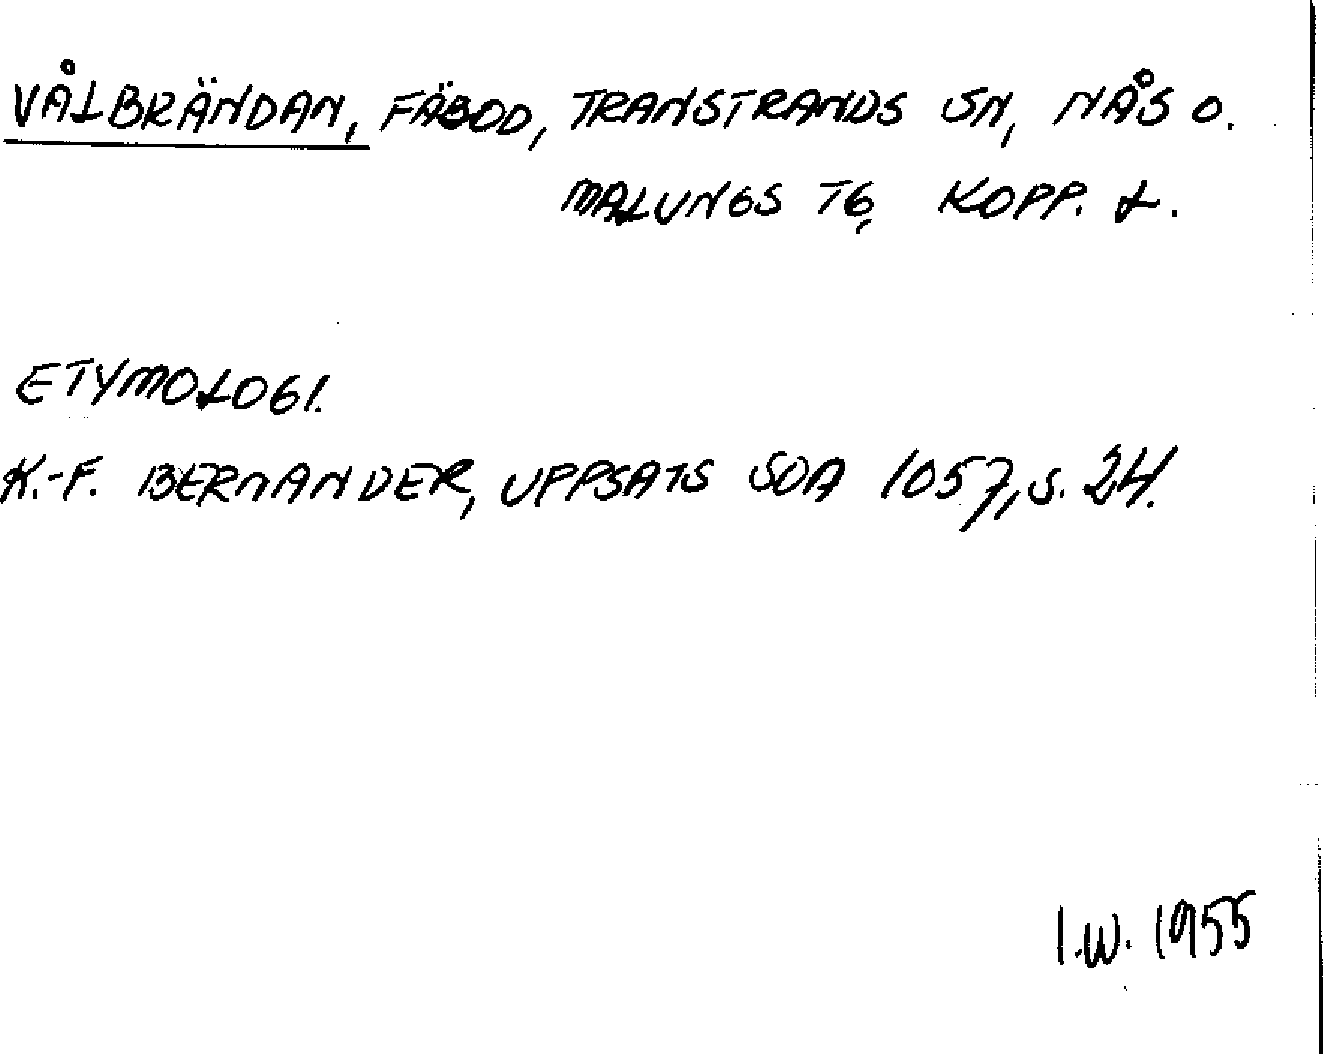 VÅLBRÄNDAN, FÄBOD, TRANSTRANDS SN, NÅS O.
MALUNGS TG, KOPP. L.
ETYMOLOGI.
K.-F. BERNANDER, UPPSATS SOA 1057, S. 24.
I.W. 1955